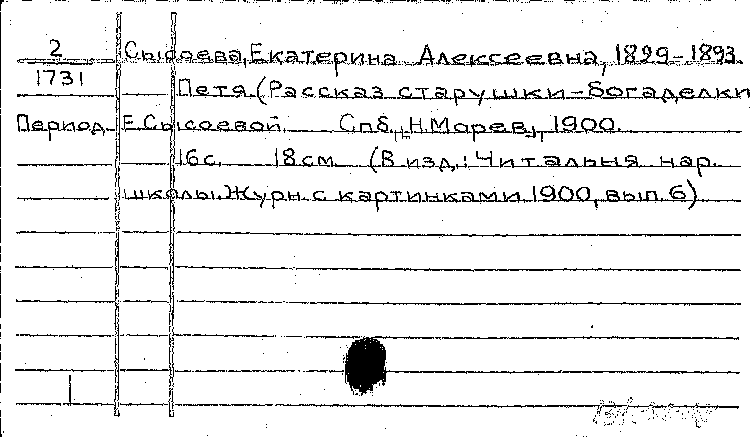 2 Сысоева, Екатерина Алексеевна, 1829-1893.
1731 Петя. (Рассказ старушки-богаделки
Период. Е. Сысоевой. Спб., Н. Морев, 1900.
16 с. 18 см. (В изд.: Читальня нар.
школы. Журн. с картинками. 1900, вып. 6)